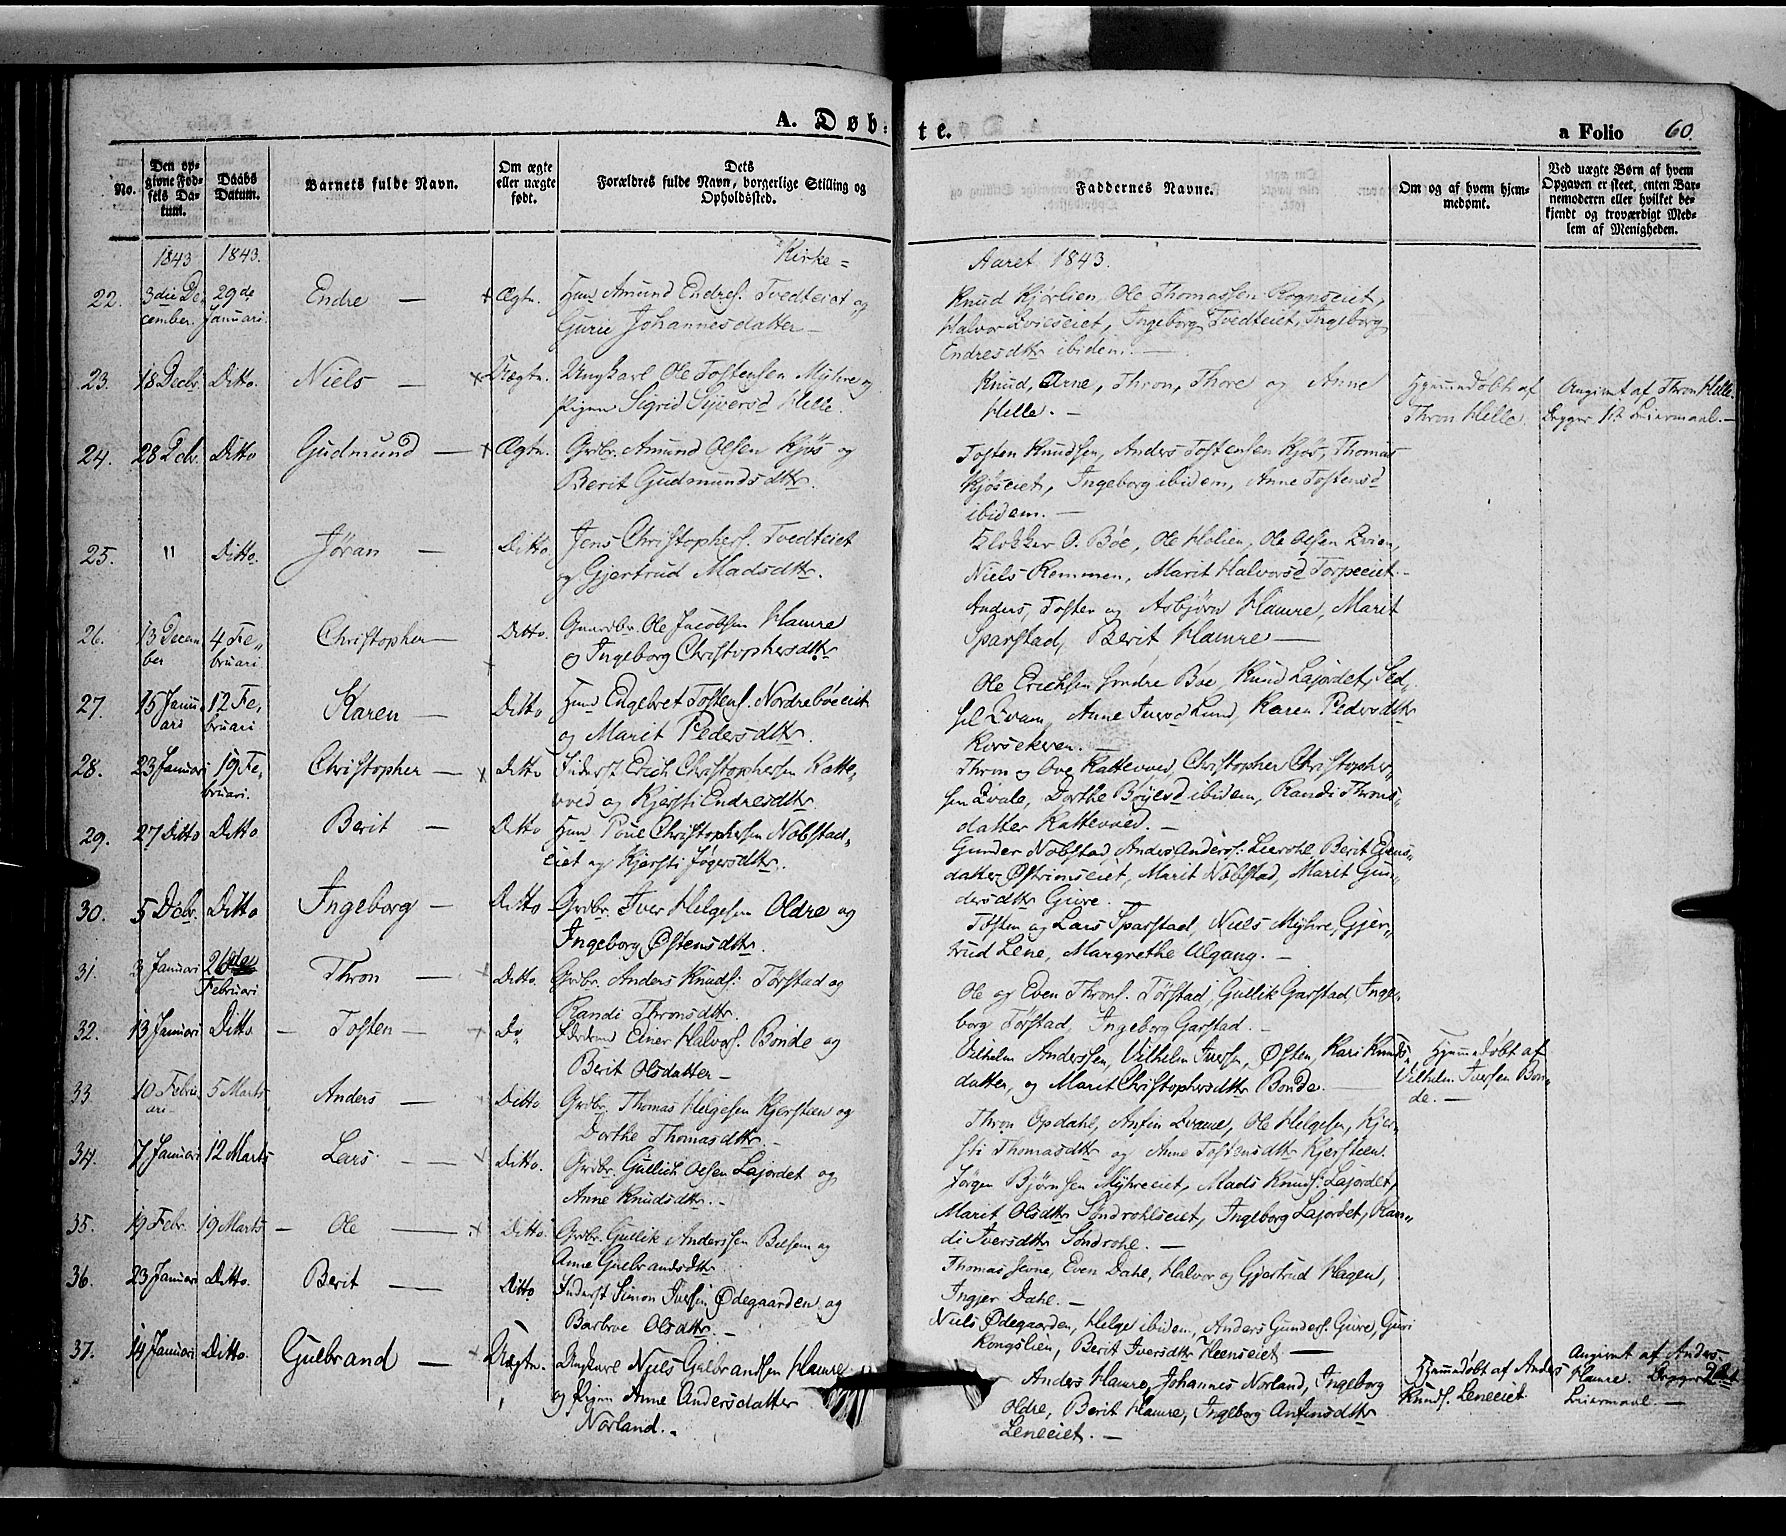 A. Døb= te. a Folio 60.
No.
Den op=
givne Fød=
sels Da=
tum.
Daabs
Datum.
Barnets fulde Navn.
Om ægte
eller uægte
født.
Dets
Forældres fulde Navn, borgerlige Stilling og
Opholdssted.
Faddernes Navne.
Om og af hvem hjem=
medøbt.
Ved uægte Børn af hvem
Opgaven er skeet, enten Bar=
nemoderen eller hvilket be=
kjendt og troværdigt Med=
lem af Menigheden.
1843 1843. Kirke= Aaret 1843.
22. 3die De= 29de Endre — Ægte. Huusm. Amund Endres. Tvedteiet og
cember. Januari. Gurie Johannesdatter —
Knud Kjørlien, Ole Thomassen Rognseiet,
Halvor Qvieseiet, Ingeborg Tvedteiet, Ingeborg
Endresdttr ibidem. —
23. 18 Decbr. Ditto. Niels — Uægte. Ungkarl Ole Tostensen Myhre og
Pigen Sigrid Syversd Helle.
Knud, Arne, Thron, Thore og Anne
Helle. —
Hjemmedøbt af
Thron Helle.
Angivet af Thron Helle.
Begges 1st Leiermaal. —
24. 28 Dcbr. Ditto Gudmund — Ægte. Grdbr. Amund Olsen Kjøs og
Berit Gudmundsdttr.
Tosten Knudsen, Anders Tostensen Kjøs, Thomas
Kjøseiet, Ingeborg ibidem, Anne Tostensd
ibidem. —
25. " Ditto. Jøran — Ditto Jens Christophers. Tvedteiet
og Gjertrud Madsdttr.
Klokker O. Bøe, Ole Holien, Ole Olsen Qvien,
Niels Remmen, Marit Halvorsd Torpeeiet.
26. 13 Decem 4 Fe= Christopher — Ditto. Gaardbr. Ole Jacobsen Hamre
ber bruari. og Ingeborg Christophersdttr
Anders, Tosten og Asbjørn Hamre, Marit
Sparstad, Berit Hamre —
27. 15 Janu= 12 Fe= Karen — Ditto Huusm Engebret Tostens. Nordrebøeeiet
ari bruari og Marit Pedersdttr.
Ole Ericksen Søndre Bøe, Knud Lajordet, Sed=
sel Qvam, Anne Iversd Lund, Karen Pedersdttr
Korsekeren. —
28. 23 Januari 19 Fe= Christopher — Ditto Inderst Erich Christophersen Katte=
bruari. vved og Kjersti Endresdttr.
Thron og Ove Kattevved, Christopher Christopher=
sen Qvale, Dorthe Bøyesd ibidem, Randi Throns=
datter Kattevved. —
29. 27 Ditto Ditto Berit — Ditto Huusm Poul Christophersen Nøbstad=
eiet og Kjersti Jøgersdttr.
Gunder Nøbstad, Anders Anderss. Lierohl, Berit Evens=
datter Østrimseiet, Marit Nøbstad, Marit Gun=
dersdttr Giure. —
30. 5 Dcbr. Ditto Ingeborg — Ditto Grdbr. Iver Helgesen Oldre og
Ingeborg Østensdttr.
Tosten og Lars Sparstad, Niels Myhre, Gjer=
trud Lene, Margrethe Ulgang. —
31. 3 Januari 26de Thron — Ditto. Grdbr. Anders Knuds. Tørstad og
Februari Randi Thronsdttr.
Ole og Even Throns. Tørstad, Gullik Garstad, Inge=
borg Tørstad, Ingeborg Garstad. —
32. 13 Januari Ditto — Tosten — Do Einer Halvors. Bonde og
Berit Olsdatter —
Vilhelm Anderssen, Vilhelm Iversen, Østen, Kari Knuds=
datter, og Marit Christophersdttr Bonde. —
Hjemmedøbt af
Vilhelm Iversen Bon=
de. —
33 10 Febru= 5 Marts Anders — Ditto Grdbr. Thomas Helgesen Kjersteen og
ari — Dorthe Thomasdttr. —
Thron Opdahl, Anfin Qvame, Ole Helgesen, Kjer=
sti Thomasdttr og Anne Tostensdttr Kjersteen.
34. 7 Januari 12 Marts Lars — Ditto. Grdbr. Gullich Olsen Lajordet og
Anne Knudsdttr. —
Jørgen Bjørnsen Myhreeiet, Mads Knuds. Lajordet,
Marit Olsdttr Søndrohlseiet, Ingeborg Lajordet, Ran=
di Iversdttr Søndrohl. —
35. 19 Febr. 19 Marts — Ole — Ditto. Grdbr. Gullik Anderssen Belsem og
Anne Gulbrandsdttr
Thomas Jevne, Even Dahl, Halvor og Gjertrud Hagen,
Ingjer Dahl. —
36. 23 Januari Ditto. Berit — Ditto Inderst Simon Iversen Ødegaarden og
Barbroe Olsdttr. —
Niels Ødegaarden, Helge ibidem, Anders Gunders. Giure, Guri
Kongslien, Berit Iversdttr Heenseiet —
37. 14 Januari Ditto. Gulbrand — Uægte. Ungkarl Niels Gulbrandsen Hamre
og Pigen Anne Andersdatter
Norland. —
Anders Hamre, Johannes Norland, Ingeborg
Oldre, Berit Hamre, Ingeborg Anfinsdttr
Leneeiet. —
Hjemmedøbt af Anders
Knuds. Leneeiet
Angivet af Anders
Hamre. Begges 2det
Leiermaal. —